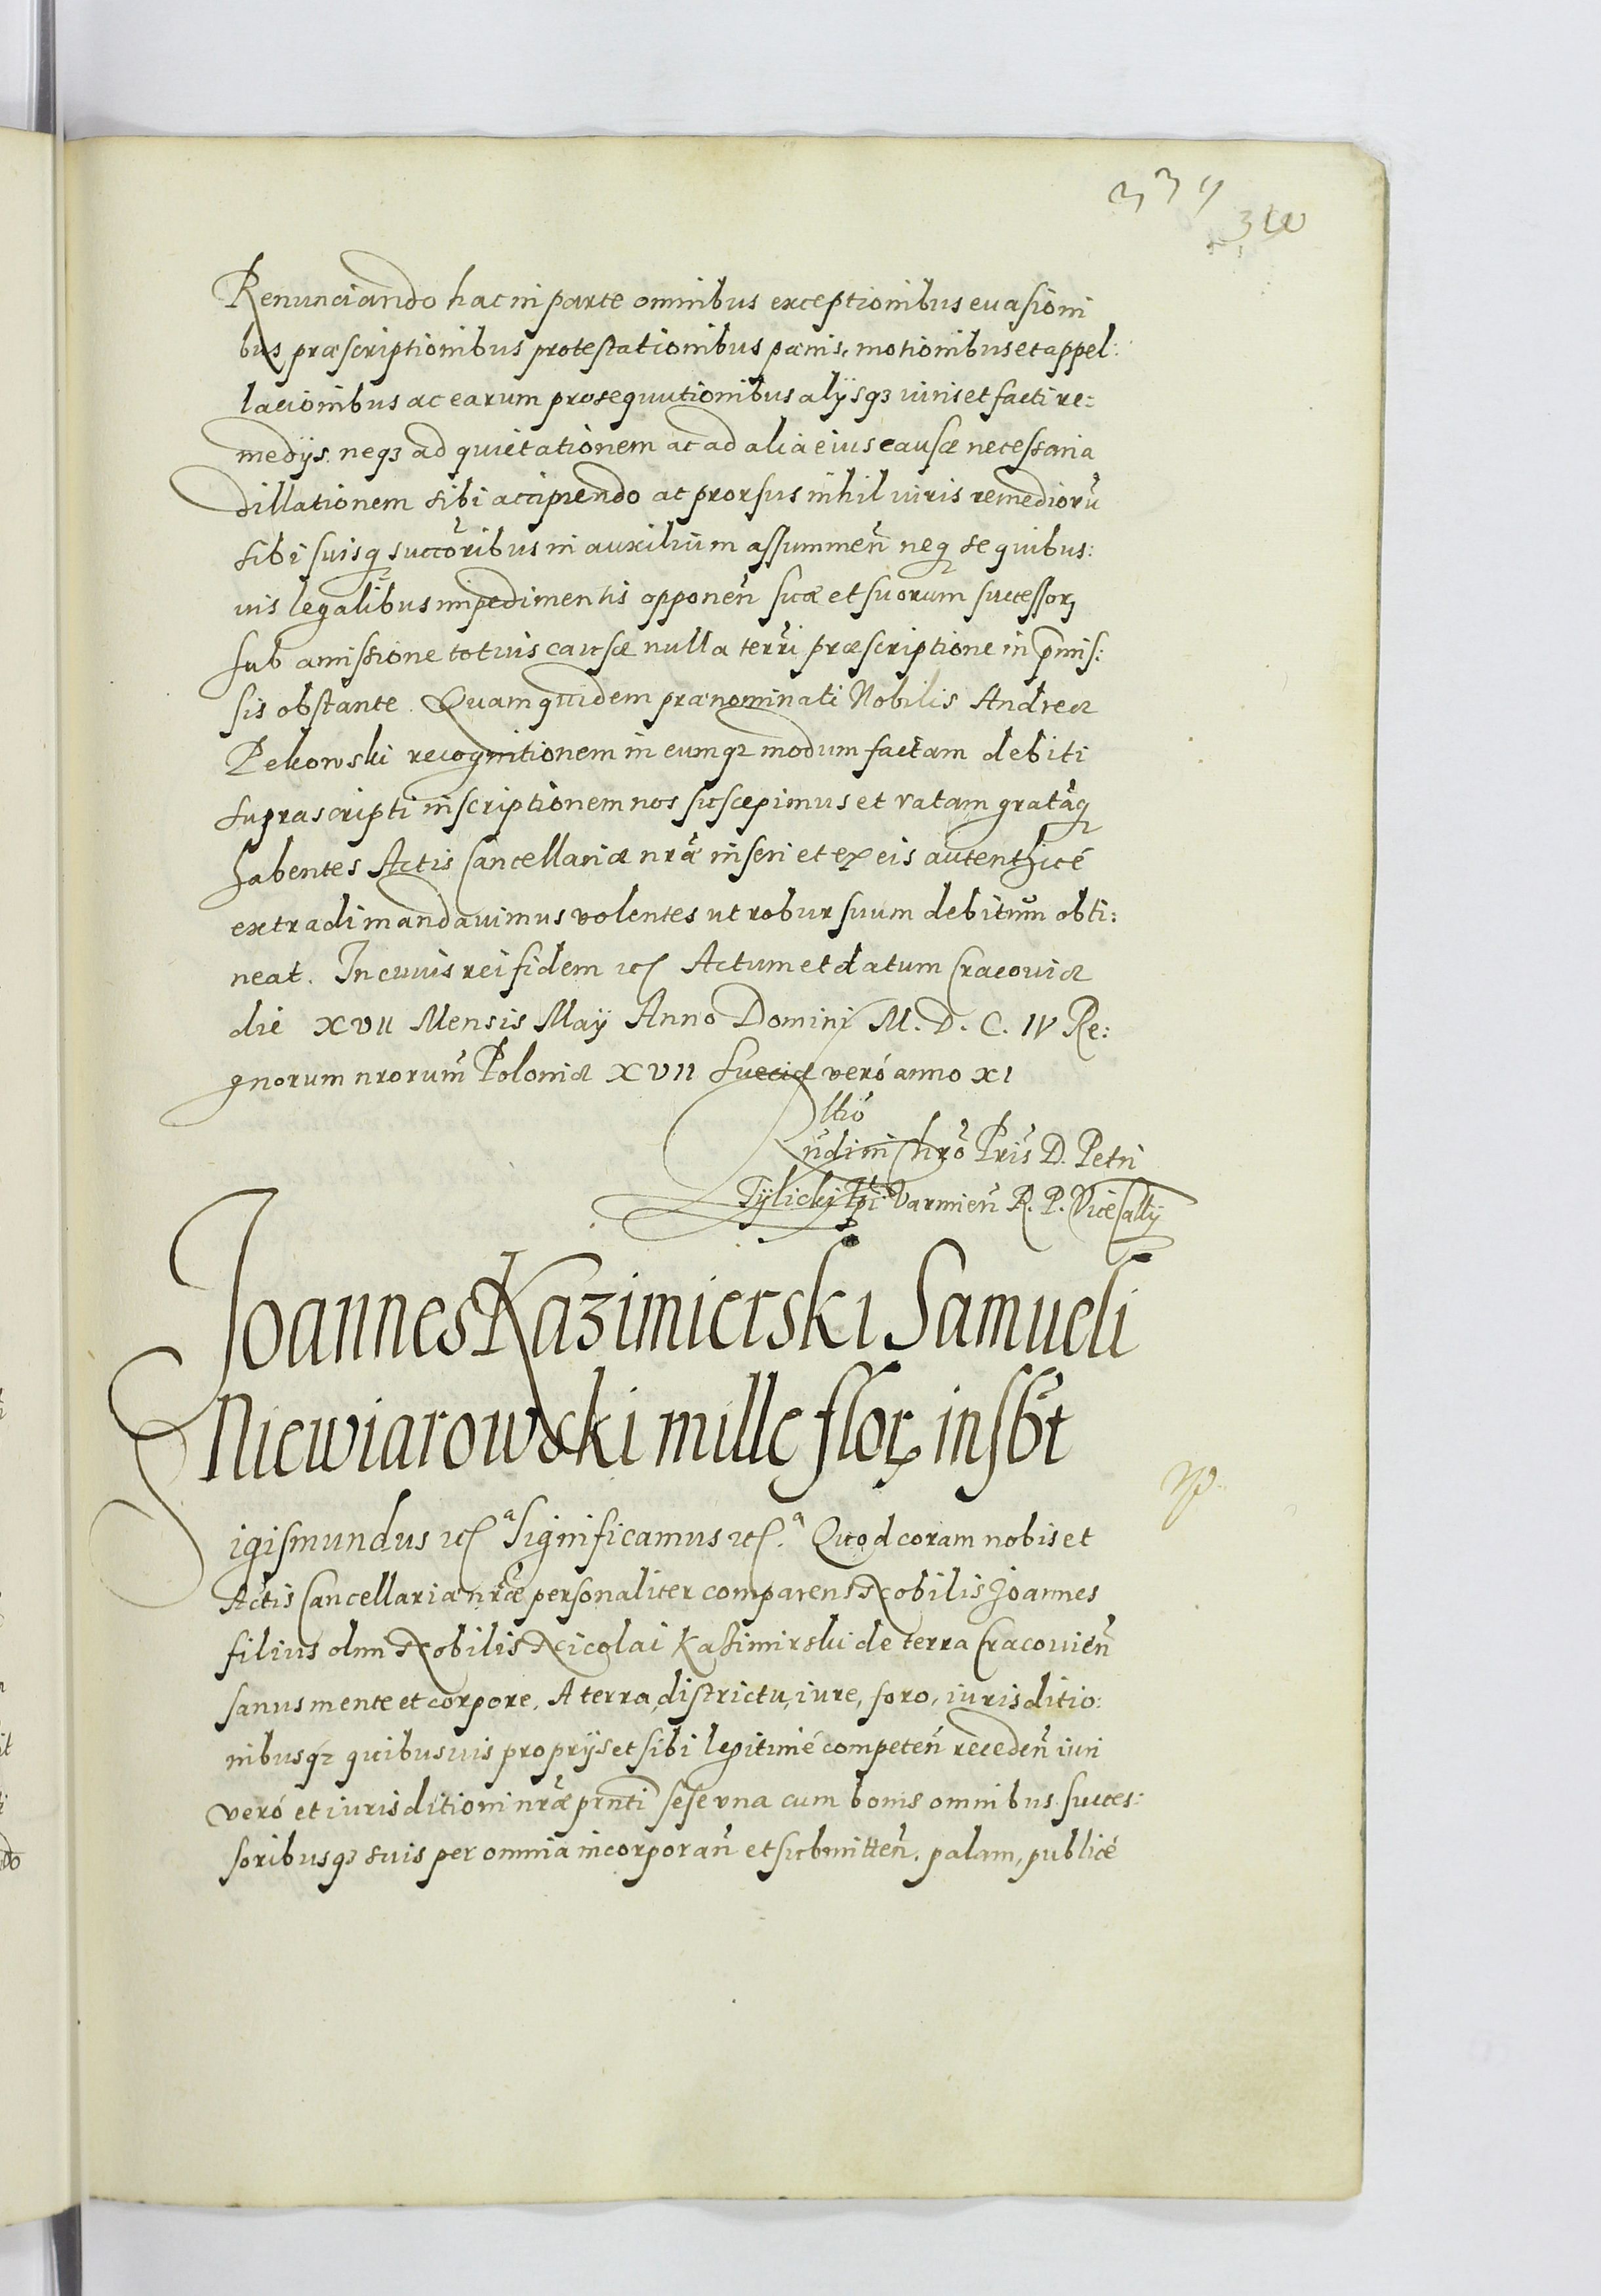 339
Renunciando hac in parte omnibus exceptionibus euasioni
bus præscriptionibus protestationibus pœnis, motionibus et appel:
lacionibus ac earum prosequutionibus alÿsqꝫ iuris et facti re:
medÿs. neqꝫ ad quietationem ac ad alia eius causæ necessaria
dillationem sibi accipiendo ac prorsus nihil iuris remediorū
sibi suisq succ̃oribus in auxilium assummeñ neq se quibus:
uis legalibus impedimentis opponeñ suæ et suorum successorꝫ
sub amissione totius causæ nulla terr̃i præscriptione in p̃mis:
sis obstante. Quam quidem prænominati Nobilis Andreæ
Pekowski recognitionem in eumqꝫ modum factam debiti
suprascripti inscriptionem nos suscepimus et ratam gratãq
habentes Actis Cancellariæ nræ̃ inseri et ex eis autenthicé
extradi mandauimus volentes ut robur suum debitum obti:
neat. In cuius rei fidem etc Actum et datum Cracouiæ
die XVII Mensis Maÿ Anno Domini M. D. C. IV Re:
gnorum nrorum̃ Poloniæ XVII Sueciæ veró anno XI
Rltió
ñdi in Chrõ Pris̃ D. Petri
Tÿlicki Ep̃i Varmieñ R. P. ViceCallÿ
Joannes Kazimierski Samueli
Niewiarowski mille flor insb̃t
Sigismundus etc a Significamus etc. a Quod coram nobis et
Actis Cancellariæ nræ̃ personaliter comparens Nobilis Joannes
filius olim Nobilis Nicolai Kazimirski de terra Cracouieñ
sanus mente et corpore, A terra, districtu, iure, foro, iurisditio:
nibusqꝫ quibusuis proprÿs et sibi legitimé competeñ recedeñ iuri
veró et iurisditioni nræ̃ prñti sese vna cum bonis omnibus succes:
soribusqꝫ suis per omnia incorporañ et submitteñ. palam, publicé